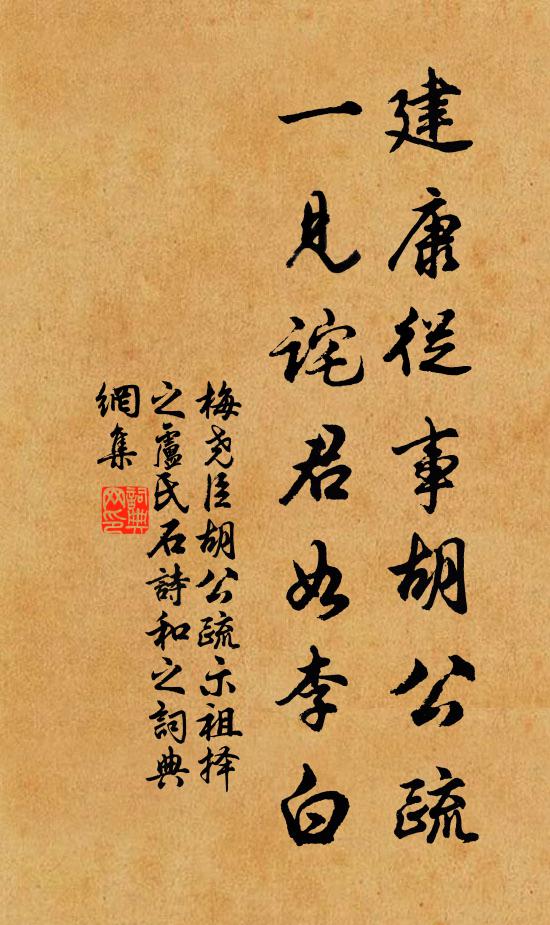 建康從事胡公疏
一見詫君如李白
梅尧臣胡公疏示祖择
之盧氏石詩和之詞典
網集
詞典
网印